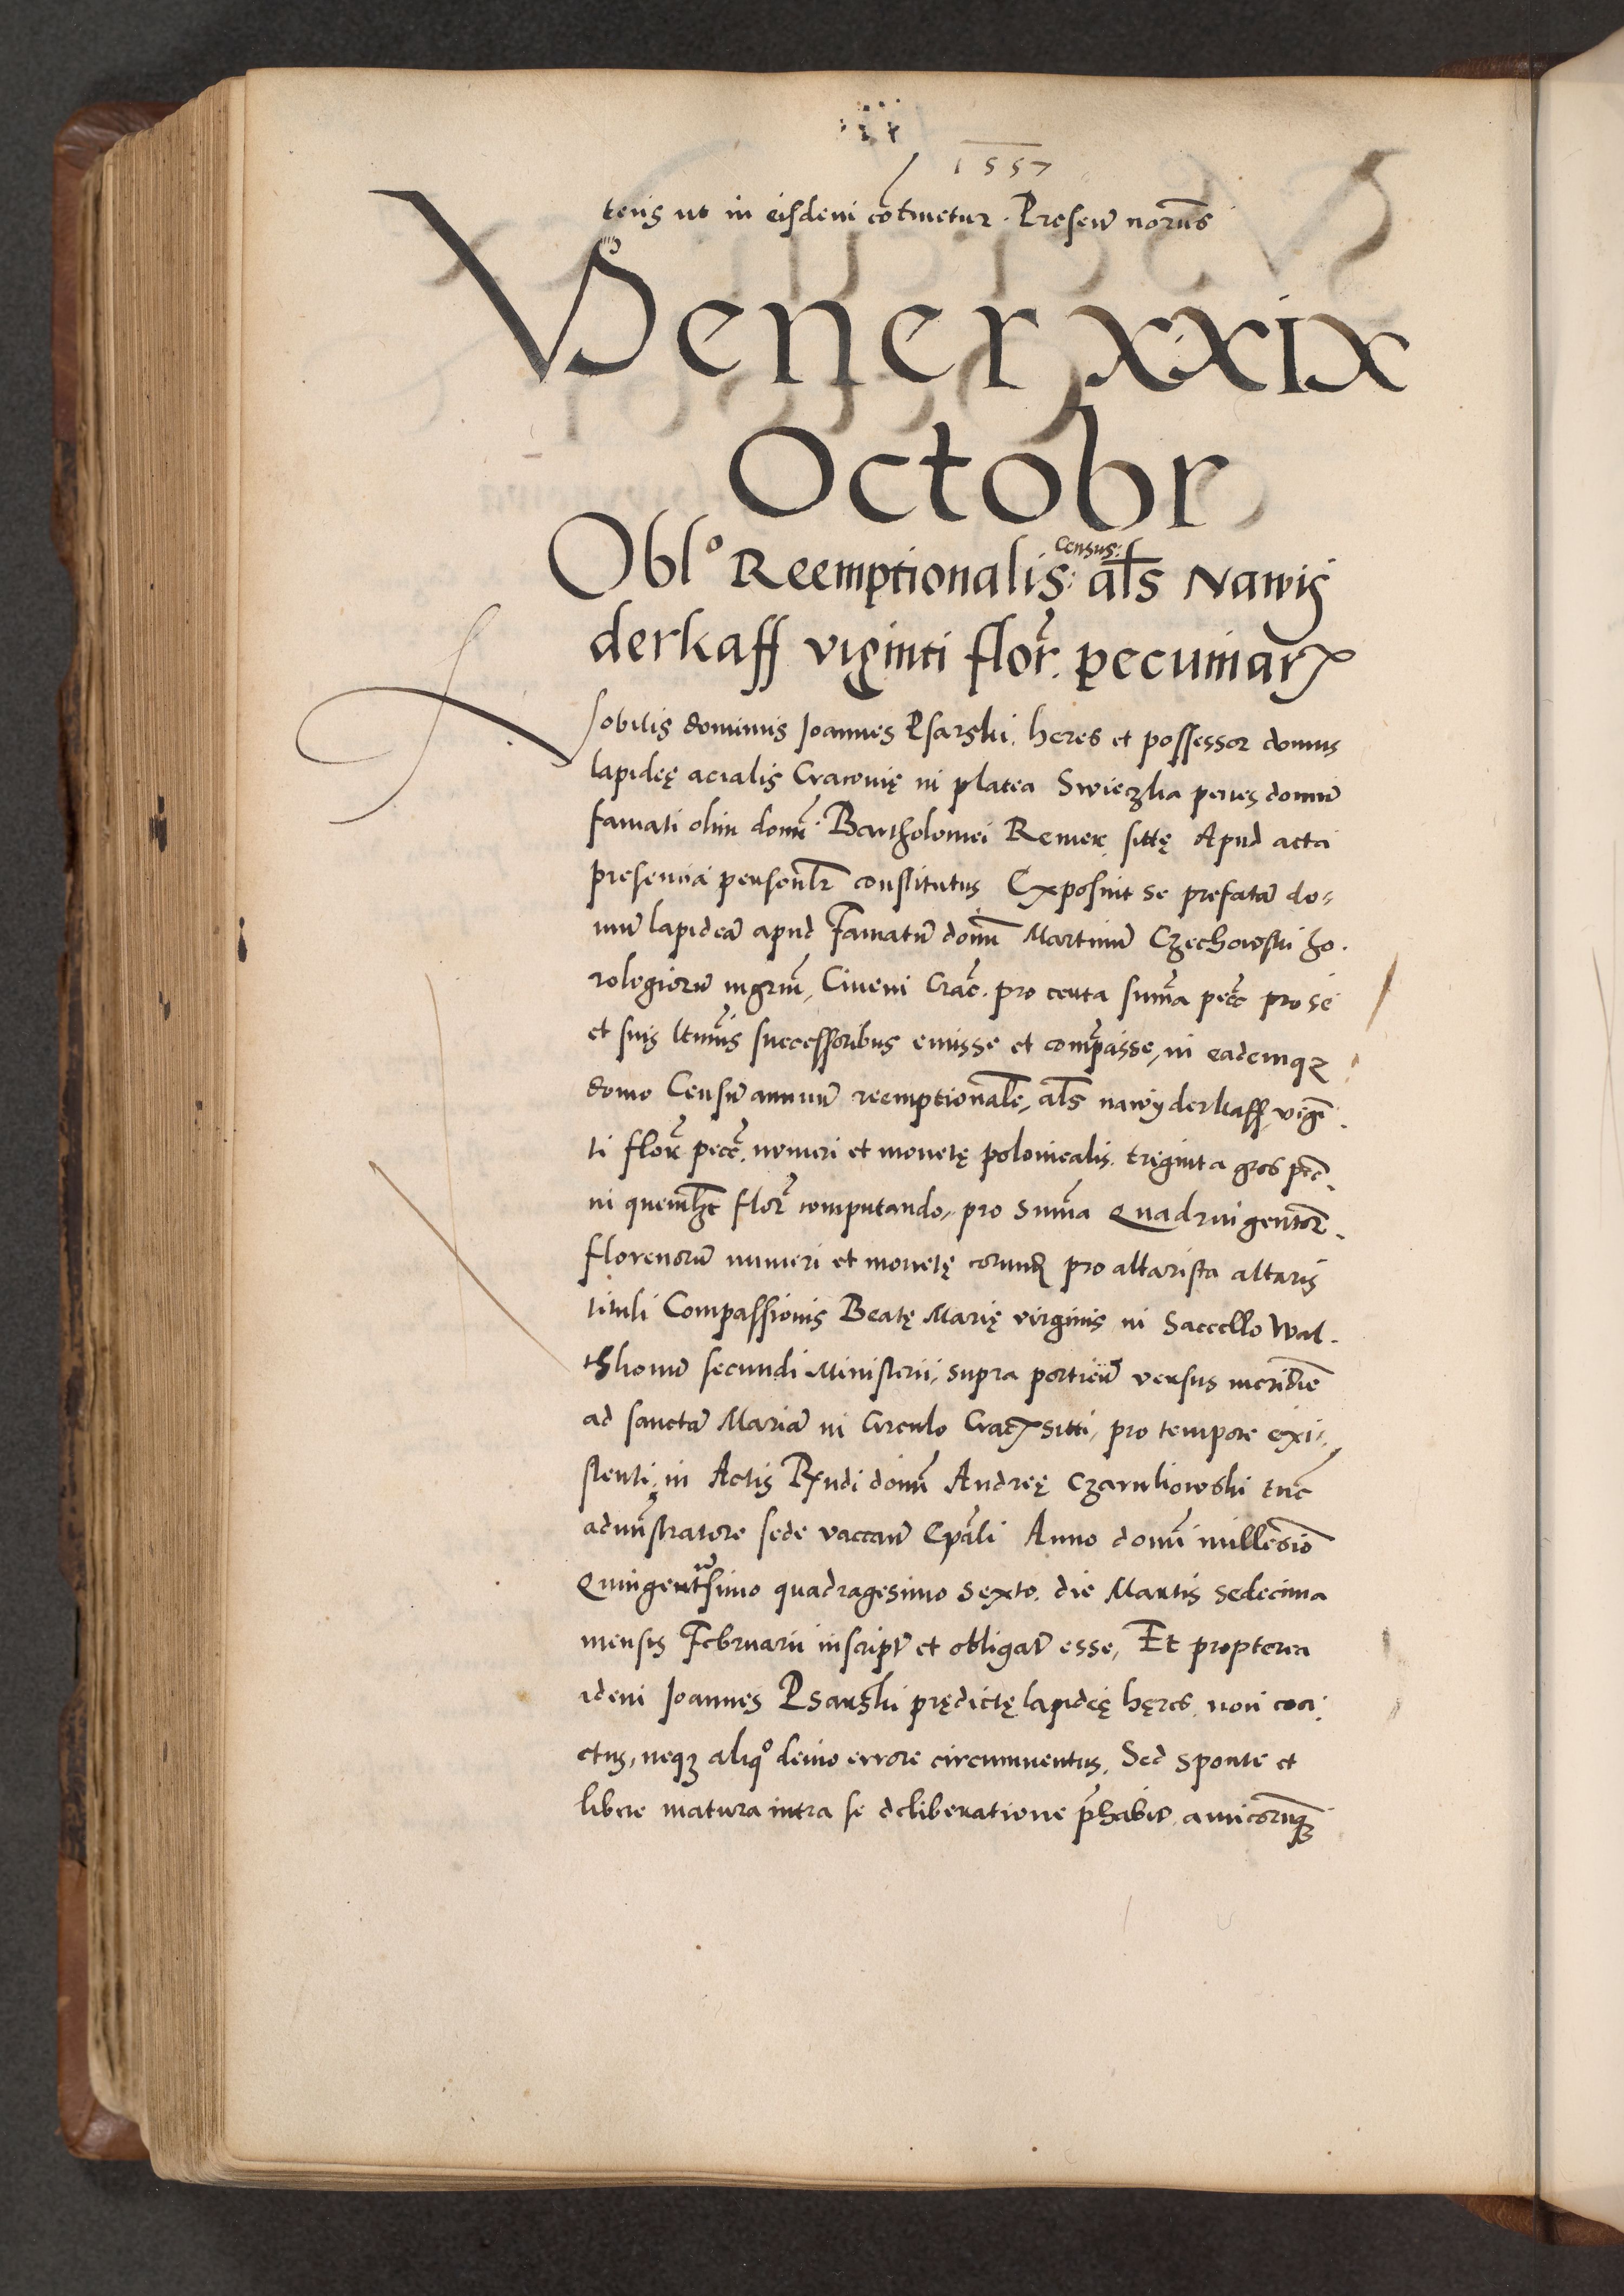 1557
teris ut in eisdem cōtinetur. Presen̄ norūs
Vener XXIX
Octobr
census:
Oblo Reemptionalis: als Nawij
derkaff viginti flor. pecuniar
Nobilis dominus Joannes Psarski, heres et possessor domus
lapideę acialis Cracovię in platea Swieczka penes domū
famati olim domī Bartholomei Remer sittę Apud acta
presencia personlr constitutus Exposuit se prefatā do=
mū lapideā apud Famatū domī Martinū Czechowski ho.
rologiorū mgrm, Civem Crac. pro certa suma pecc pro se
et suis ltimis successoribus emisse et comparasse, in eademq₃
domo Censū annuū reemptionale, als nawyderkaff vigī
ti flor pecc. numeri et monetę polonicalis. triginta gros pec
in quemlzt flor computando, pro suma Quadringentor
florenorū numeri et monetę corund pro altarista altaris
tituli Compassionis Beatę Marię virginis in Sacello Wal.
thkonū secundi Ministerii, supra porticū versus meridiē
ad sanctā Mariā in Circulo Crac sitti, pro tempore exi=
stenti, in Actis Rndi domī Andreę Czarnkowski tūc
admstratore sede vaccan̄ Epali Anno domī millesīo
Quingentesimo quadragesimo sexto. die Martis sedecima
mensis Februarii inscript et obligat esse, Et propterea
idem Joannes Psarski prędictę lapideę hęres. non coa.
ctus, neq₃ aliqo devio errore circumventus. Sed sponte et
libere matura intra se deliberatione phabit amicorūq₃